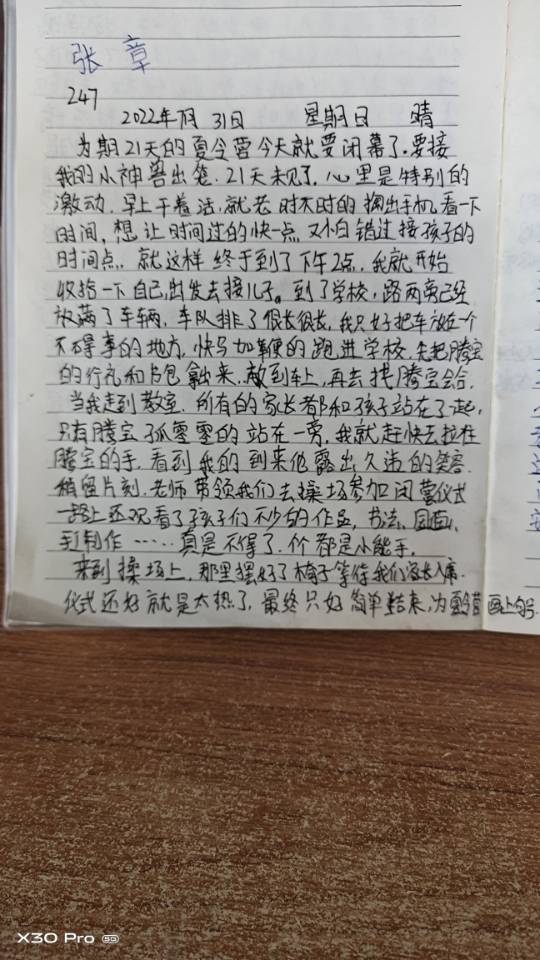 张章
247
2022年7月31日 星期日 晴
为期21天的夏令营今天就要闭幕了.要接
我的小神兽出笼.21天未见了,心里是特别的
激动.早上干着活,就老时不时的掏出手机看一下
时间,想让时间过的快一点,又怕错过接孩子的
时间点.就这样终于到了下午2点.我就开始
收拾一下自己,出发去接儿子。到了学校,路两旁已经
放满了车辆,车队排了很长很长,我只好把车放在一个
不碍事的地方,快马加鞭的跑进学校.先把腾宝
的行礼和书包拿出来,放到车上,再去找腾宝会合.
当我走到教室.所有的家长都和孩子站在了一起,
只有腾宝孤零零的站在一旁,我就赶快去拉在
腾宝的手,看到我的到来他露出久违的笑容.
稍留片刻.老师带领我们去操场参加闭营仪式
一路上还观看了孩子们不少的作品,书法,国画,
手制作……真是不得了.个都是小能手.
来到操场上,那里摆好了椅子等待我们家长入席.
仪式还好就是太热了,最终只好简单结束,为夏令营画上句号.
X30 Pro 5G